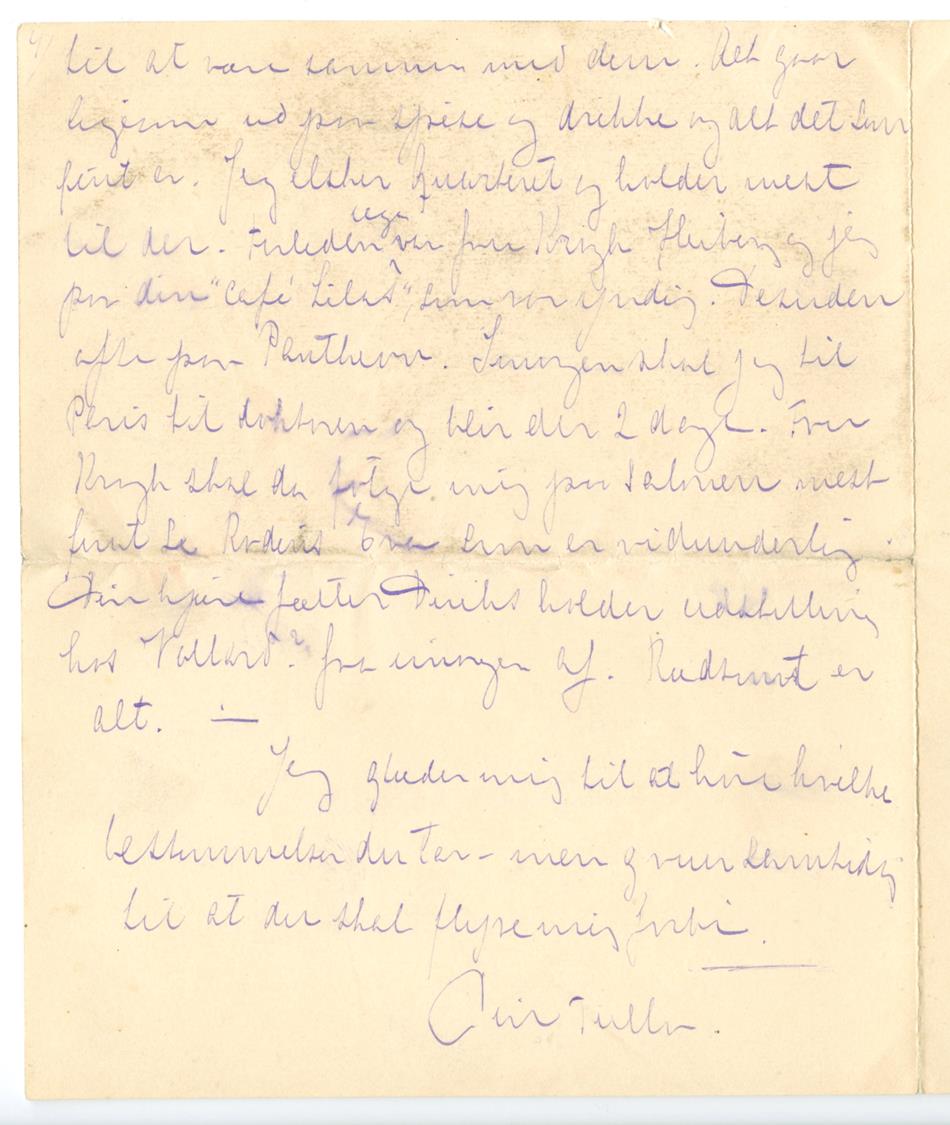 4/
til at være sammen med dem. Det gaar
ligesom ud paa spise og drikke og alt det som
fint er. Jeg elsker Quarteret og holder mest
til der. Forleden var fru Krogh Heiberg og jeg
paa din "Café Lilas", som var yndig. Desuden
ofte paa Pantheon. Imorgen skal jeg til
Paris til doktoren og blir der 2 dage. Fru
Krogh skal da følge mig paa Salonen mest
fint se Rodins Eva som er vidunderlig.
Din kjære fætter Diriks holder udstilling
hos Vollard? fra imorgen af. Rudsmot er
alt. —
Jeg glæder mig til at høre hvilke
bestemmelser du tar – men gruer samtidig
til at du skal flyve mig forbi.
Din Tulla.